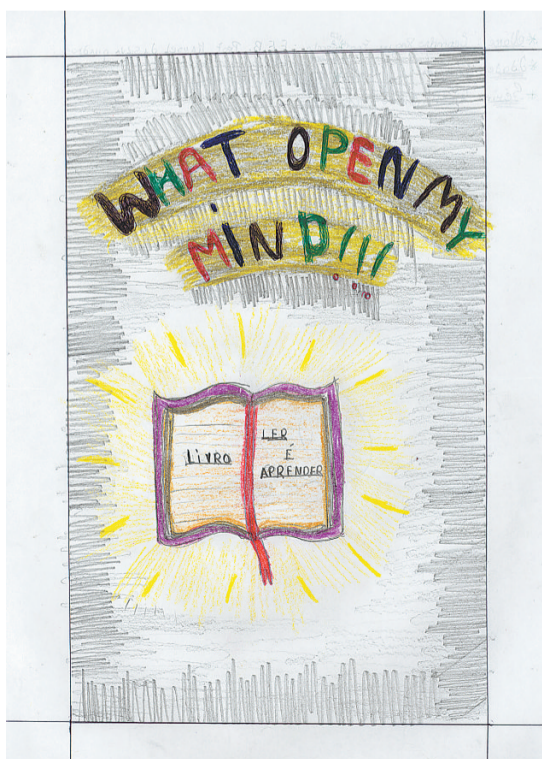 WHAT OPEN MY
MIND!!!
LiVRO
LER
É
APRENDER